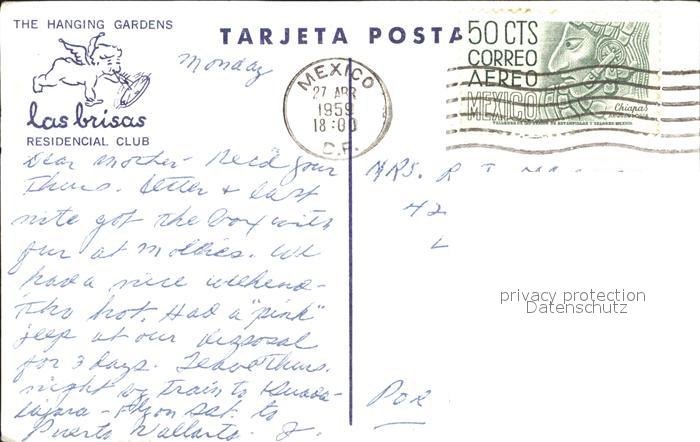 THE HANGING GARDENS
TARJETA POSTA
Monday
las brisas
RESIDENTIAL CLUB
MEXICO
27 ABR
1959
18:00
D.F.
50 CTS
CORREO
AEREO
MEXICO
Chiapas
Dear Mother - Rec'd your
Thurs. letter + last
nite got the box with
fur at Mollies. We
had a nice weekend -
tho hot. Had a "pink"
jeep at our disposal
for 3 days. Leave Thurs.
night by train to Guada-
lajara - fly on Sat. to
Puerto Vallarta. J.
MRS. R
42
L
privacy protection
Datenschutz